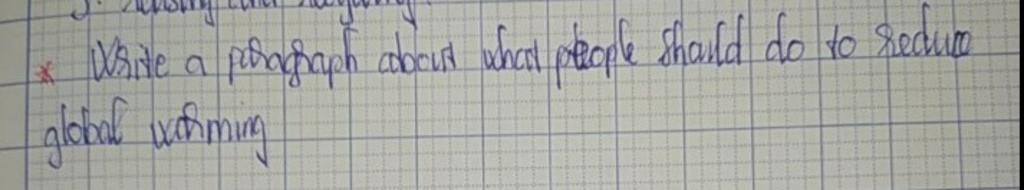 * Write a paragraph about what people should do to reduce
global warming